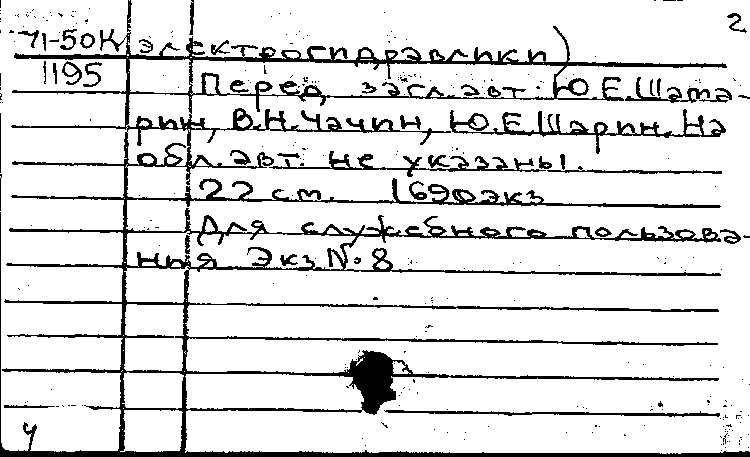 2
71-50К электрогидравлики)
1195 Перед загл. авт.: Ю.Е.Шата-
рин, В.Н.Чачин, Ю.Е.Шарин. На
обл. авт. не указаны.
22 см. 1690экз
Для служебного пользова-
ния Экз № 8
ч